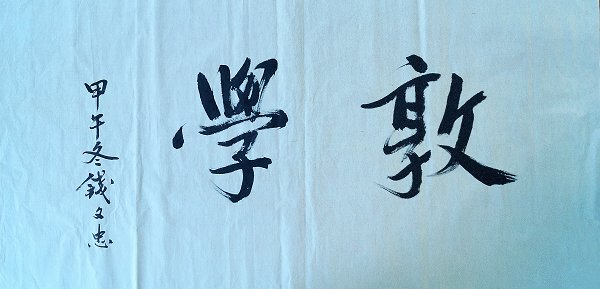 敦學
甲午冬錢文忠